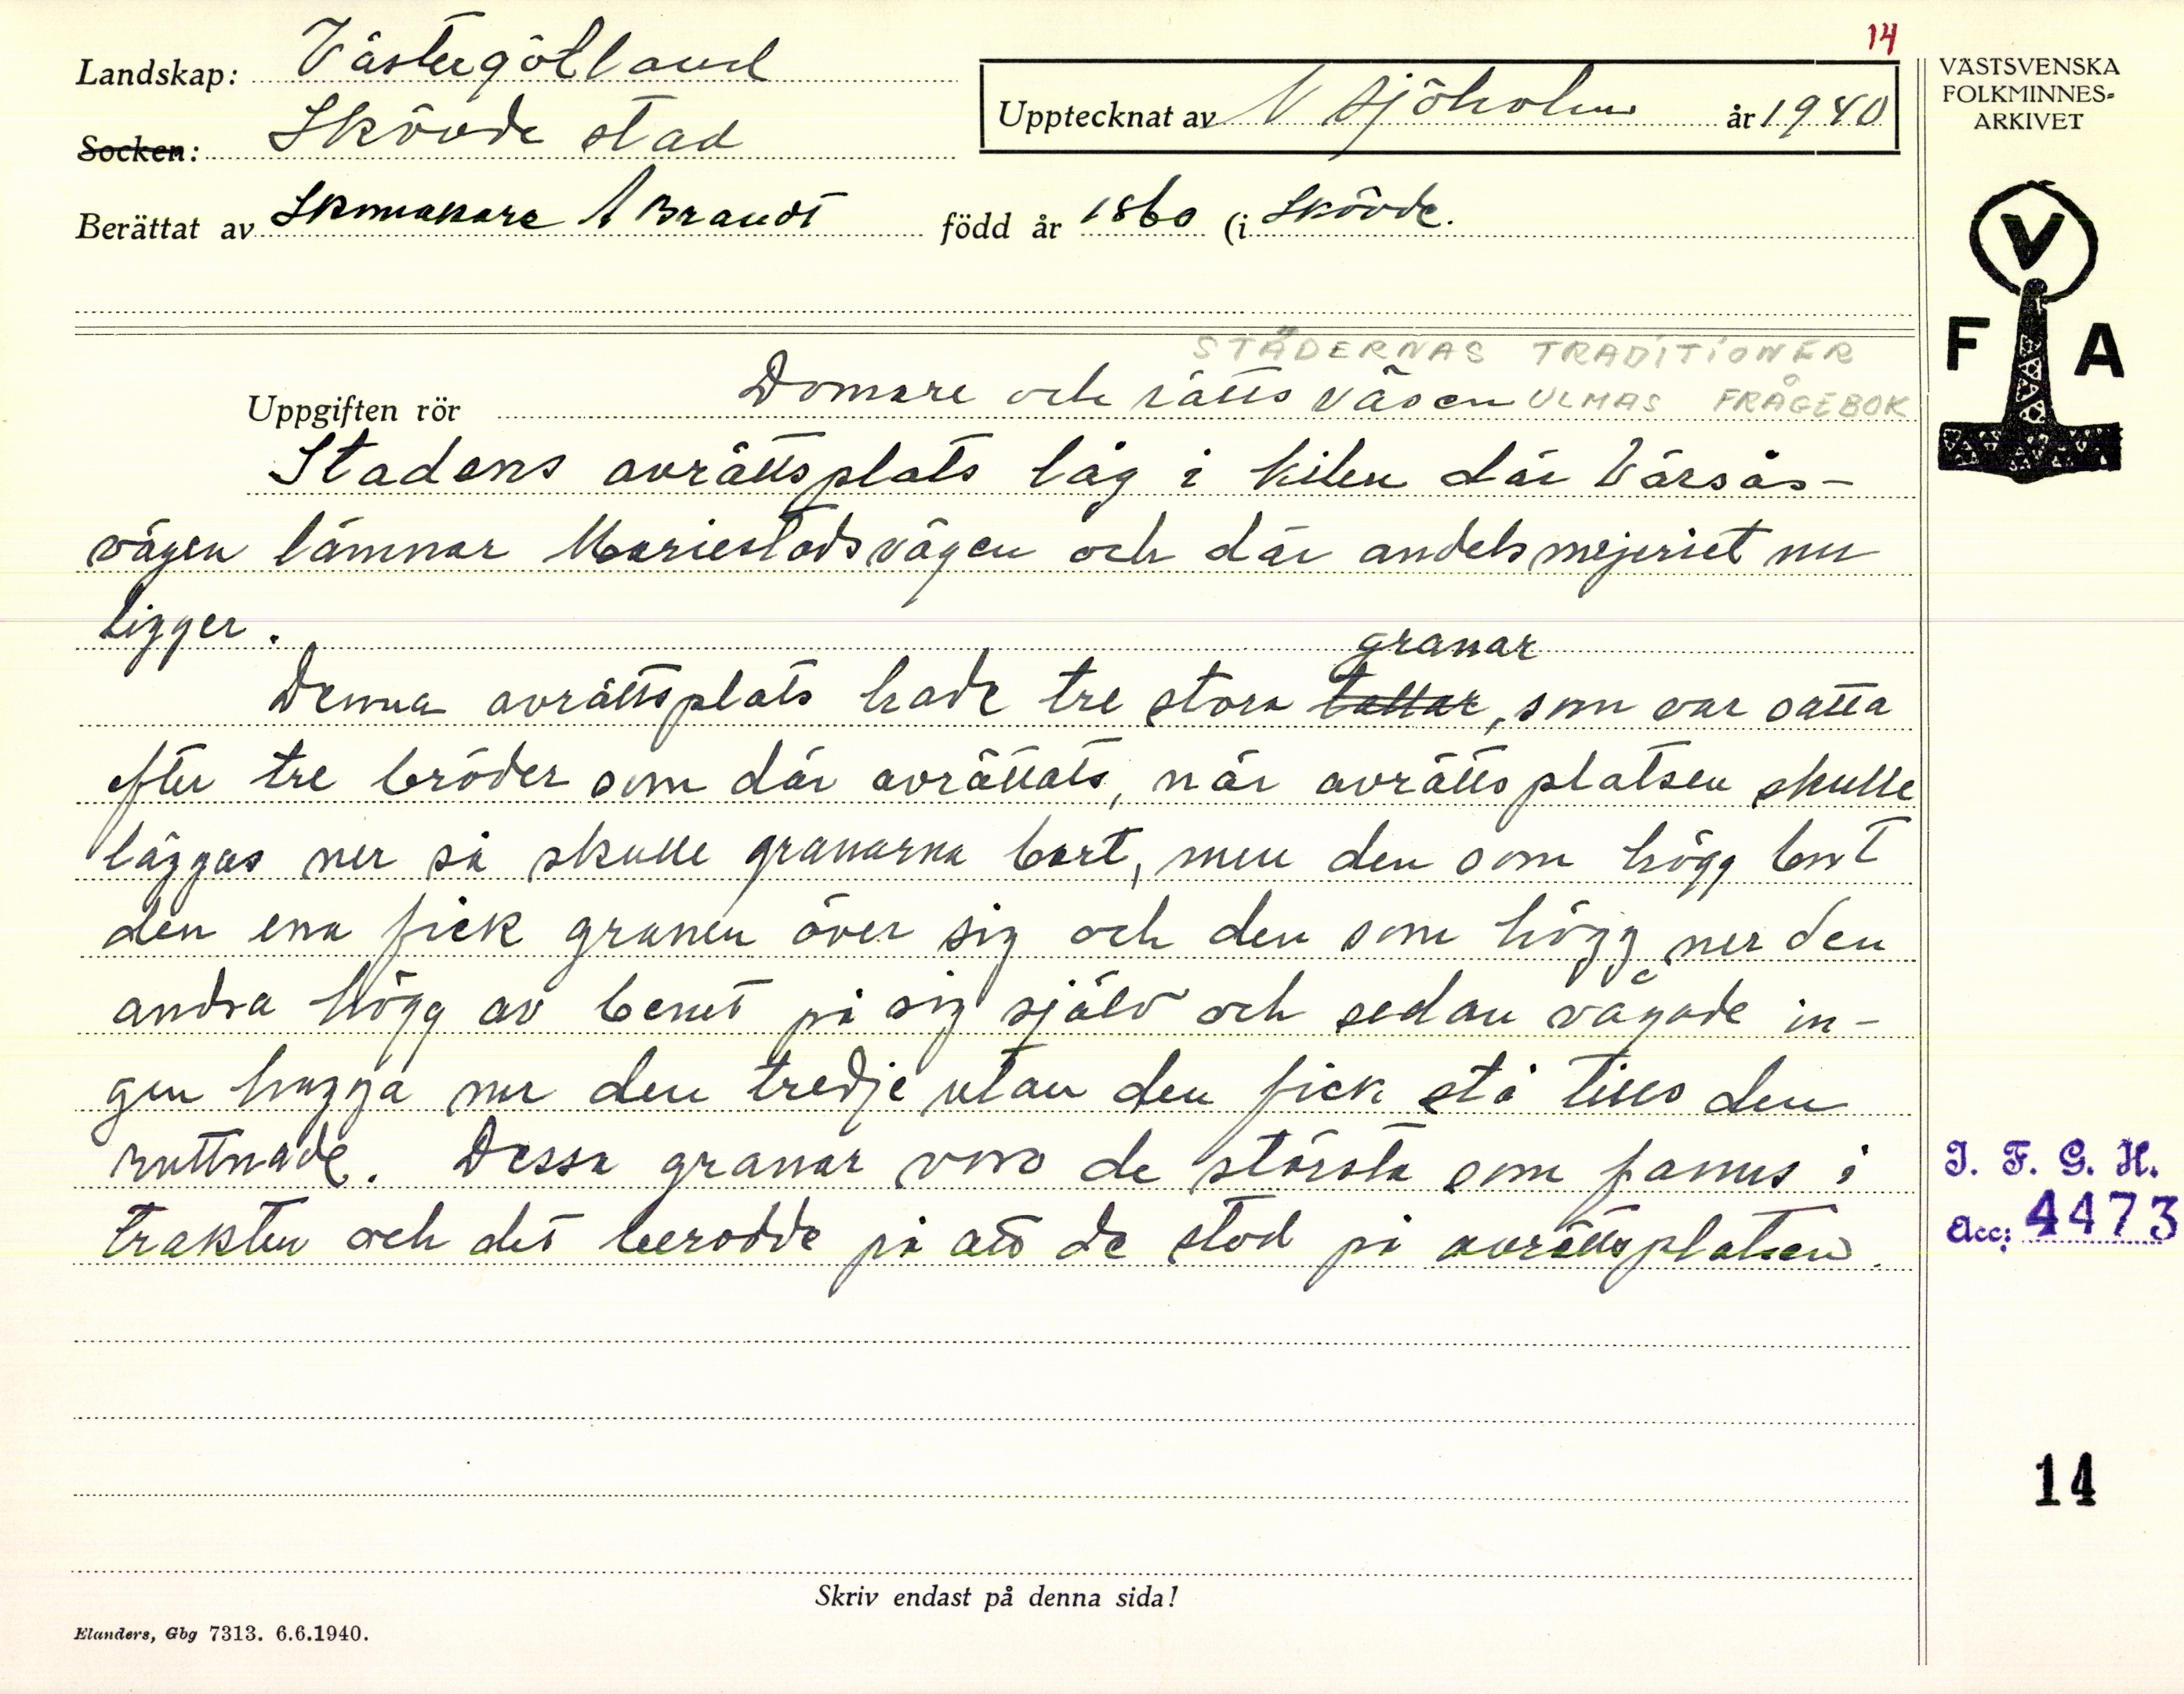 14
Landskap: Västergötland
Socken: Skövde stad
Upptecknat av N Sjöholm år 1940
Berättat av Skomakare A Brandt född år 1860 (i Skövde.
STÄDERNAS TRADITIONER
Uppgiften rör Domare och rättsväsen ULMAS FRÅGEBOK
Stadens avrättsplats låg i kilen där Vårsås-
vägen lämnar Mariestadsvägen och där andelsmejeriet nu
ligger.
granar
Denna avrättsplats hade tre stora tallar, som var satta
efter tre bröder som där avrättats, när avrättsplatsen skulle
läggas ner så skulle granarna bort, men den som högg bort
den ena fick granen över sig och den som högg ner den
andra högg av benet på sig själv och sedan vågade in-
gen hugga ner den tredje utan den fick stå tills den
ruttnade. Dessa granar voro de största som fanns i
trakten och det berodde på att de stod på avrättsplatsen.
Skriv endast på denna sida!
Elanders, Gbg 7313. 6.6.1940.
VÄSTSVENSKA
FOLKMINNES-
ARKIVET
V
F A
I. F. G. H.
Acc: 4473
14